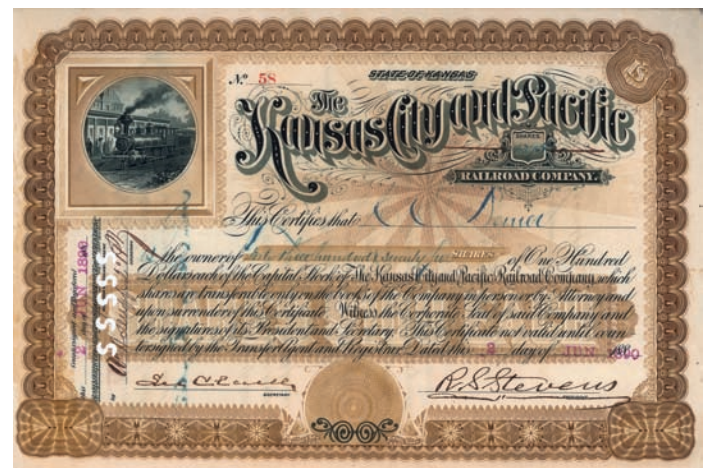 No 58
STATE OF KANSAS
The
Kansas City and Pacific
SHARES
RAILROAD COMPANY.
This Certifies that
the owner of SHARES of One Hundred
Dollars each of the Capital Stock of The Kansas City and Pacific Railroad Company which
shares are transferable only on the books of the Company in person or by Attorney and
upon surrender of this Certificate. Witness the Corporate Seal of said Company and
the signatures of its President and Secretary. This Certificate not valid until coun-
tersigned by the Transfer Agent and Registrar. Dated this 2 day of JUN 1890
R.S. Stevens
2 JUN 1890